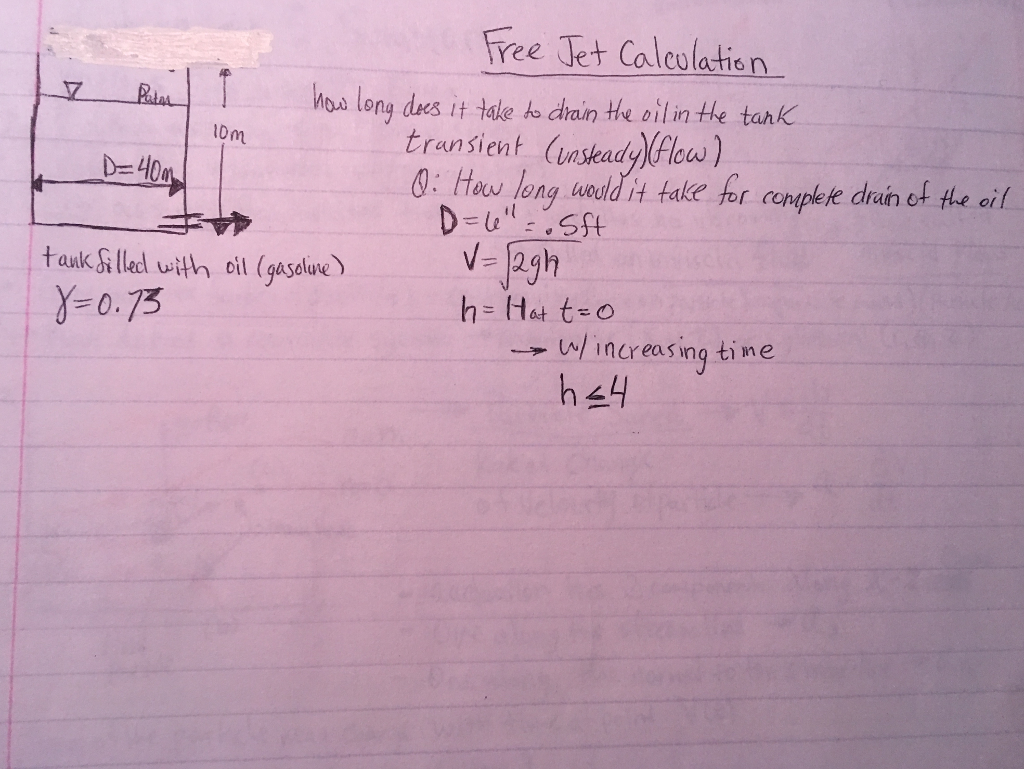 Free Jet Calculation
Patm
10m
D=40m
tank filled with oil (gasoline)
γ=0.73
how long does it take to drain the oil in the tank
transient (unsteady)(flow)
Q: How long would it take for complete drain of the oil
D=6"=.5ft
V=√2gh
h=H at t=0
→ w/ increasing time
h≤4